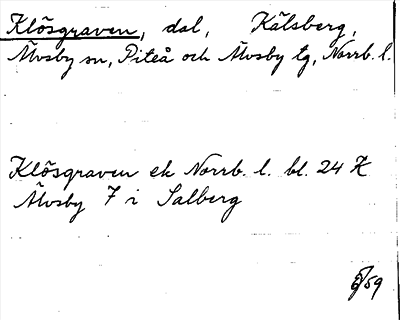 Klösgraven, dal, Kälsberg,
Älvsby sn, Piteå och Älvsby tg, Norrb. l.
Klösgraven ek Norrb. l. bl. 24 K
Älvsby 7 i Salberg
/59